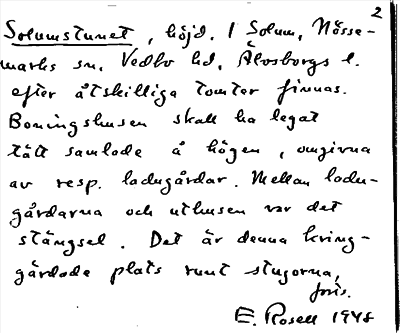 2
Solumstunet, höjd. I Solum, Nösse-
marks sn, Vedbo hd, Älvsborgs l.
efter åtskilliga tomter finnas.
Boningshusen skall ha legat
tätt samlade å högen, omgivna
av resp. ladugårdar. Mellan ladu-
gårdarna och uthusen var det
stängsel. Det är denna kring-
gärdade plats runt stugorna,
E. Rosell 1948